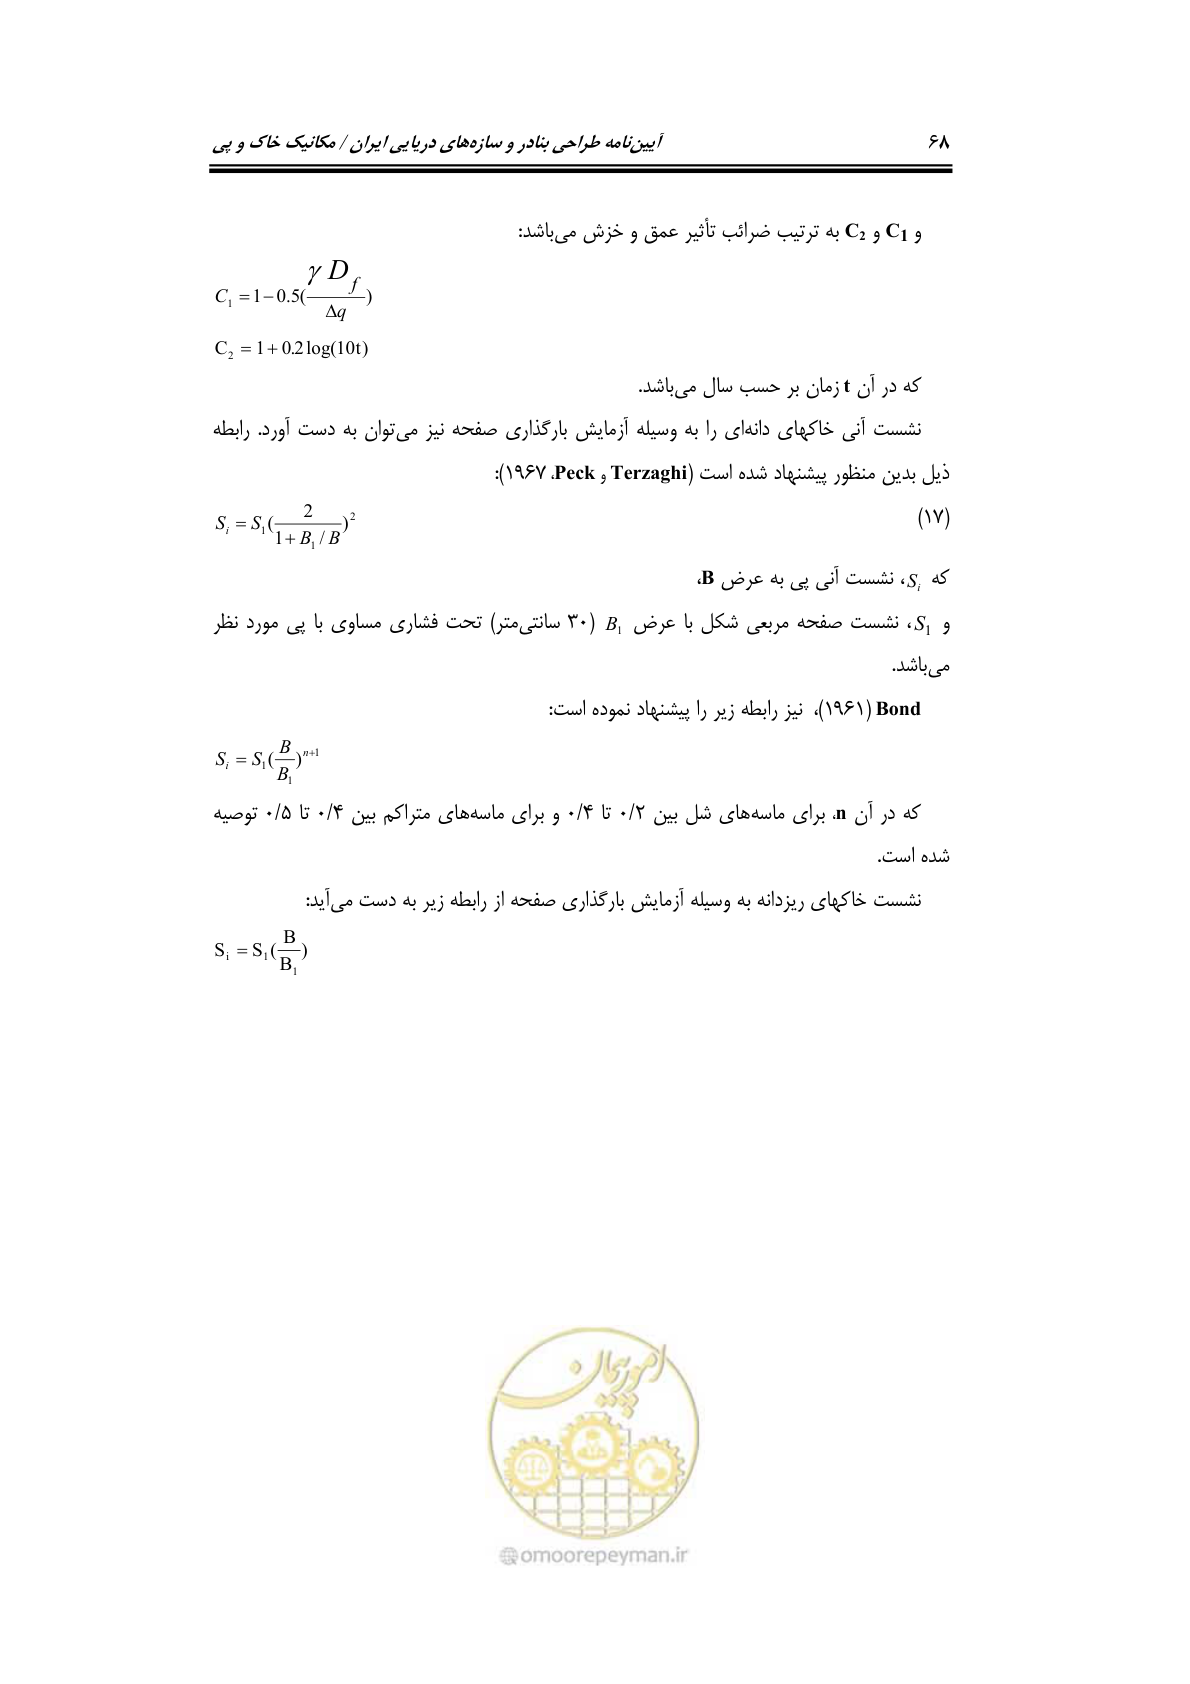 ۶۸ آیین‌نامه طراحی بنادر و سازه‌های دریایی ایران / مکانیک خاک و پی
و C1 و C2 به ترتیب ضرائب تأثیر عمق و خزش می‌باشد:
C₁ = 1 − 0.5(γ D_f / Δq)
C₂ = 1 + 0.2 log(10t)
که در آن t زمان بر حسب سال می‌باشد.
نشست آنی خاکهای دانه‌ای را به وسیله آزمایش بارگذاری صفحه نیز می‌توان به دست آورد. رابطه
ذیل بدین منظور پیشنهاد شده است (Terzaghi و Peck، ۱۹۶۷):
(۱۷) S_i = S₁(2 / (1 + B₁ / B))²
که S_i، نشست آنی پی به عرض B،
و S₁، نشست صفحه مربعی شکل با عرض B₁ (۳۰ سانتی‌متر) تحت فشاری مساوی با پی مورد نظر
می‌باشد.
Bond (۱۹۶۱)، نیز رابطه زیر را پیشنهاد نموده است:
S_i = S₁(B / B₁)^(n+1)
که در آن n، برای ماسه‌های شل بین ۰/۲ تا ۰/۴ و برای ماسه‌های متراکم بین ۰/۴ تا ۰/۵ توصیه
شده است.
نشست خاکهای ریزدانه به وسیله آزمایش بارگذاری صفحه از رابطه زیر به دست می‌آید:
S_i = S₁(B / B₁)
امورپیمان
@omoorepeyman.ir